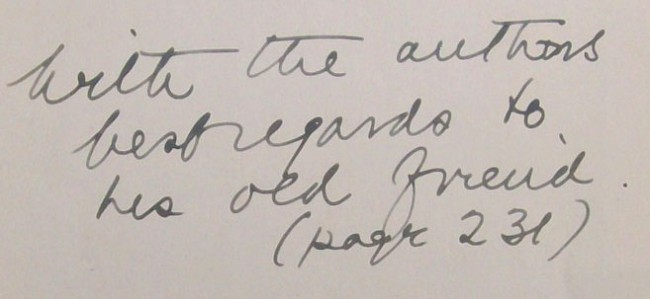 With the authors
best regards to
his old friend.
(page 231)